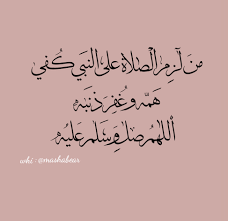 مَن لَزِمَ الصَّلاة عَلىٰ النَبي كُفي
هَمّه وغُفِرَ ذَنبَه
اَللهُم صَلِ وسَلم عَليْه
whi : @mashabear